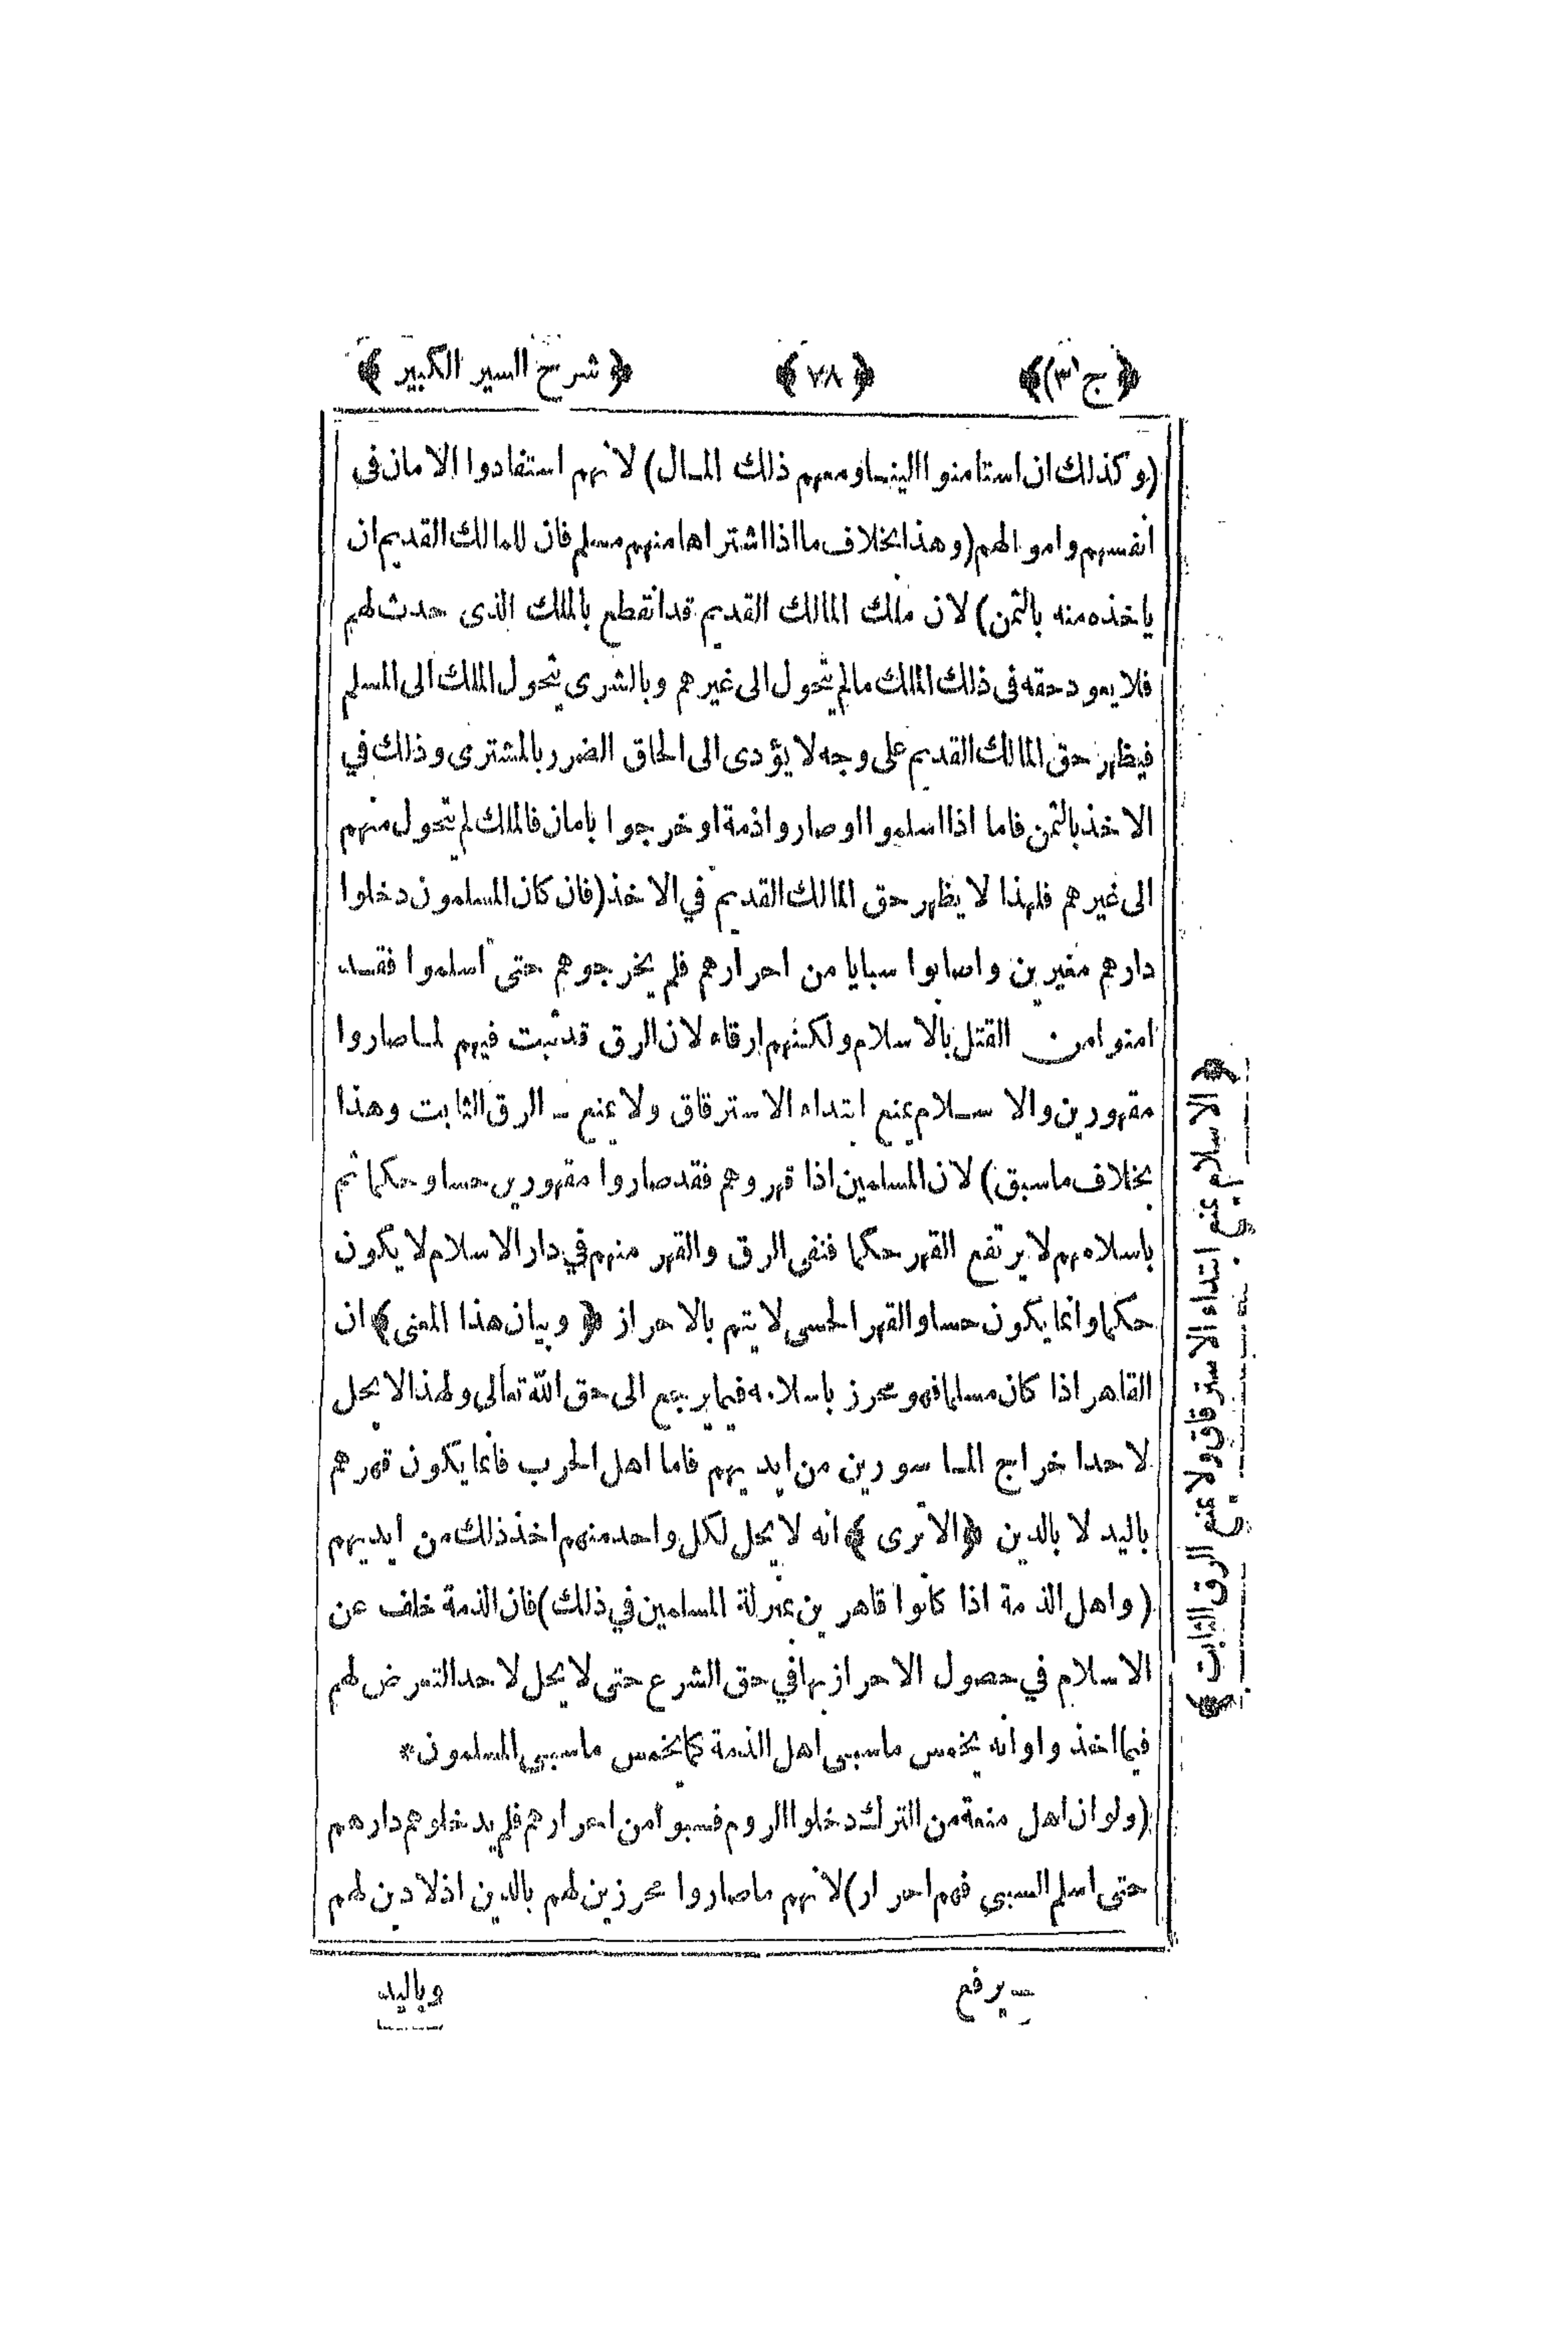 ﴿ج (٣)﴾ ﴿٧٨﴾ ﴿شرح السير الكبير﴾
(وكذلك ان استامنوا الينا ومعهم ذلك المال) لانهم استفادوا الامان فى
انفسهم واموالهم (وهذا بخلاف ما اذا اشتراها منهم مسلم فان للمالك القديم ان
ياخذه منه بالثمن) لان ملك المالك القديم قد انقطع بالملك الذى حدث لهم
فلا يعود حقه فى ذلك الملك مالم يتحول الى غيرهم وبالشرى يتحول الملك الى المسلم
فيظهر حق المالك القديم على وجه لا يؤدى الى الحاق الضرر بالمشترى وذلك في
الاخذ بالثمن فاما اذا اسلموا او صاروا ذمة او خرجوا بامان فالملك لم يتحول منهم
الى غيرهم فلهذا لا يظهر حق المالك القديم في الاخذ (فان كان المسلمون دخلوا
دارهم مغيرين واصابوا سبايا من احرارهم فلم يخرجوهم حتى اسلموا فقد
امنوا من القتل بالاسلام ولكنهم ارقاء لان الرق قد ثبت فيهم لما صاروا
مقهورين والاسلام يمنع ابتداء الاسترقاق ولا يمنع ـ الرق الثابت وهذا
بخلاف ماسبق) لان المسلمين اذا قهروهم فقد صاروا مقهورين حسا وحكما ثم
باسلامهم لا يرتفع القهر حكما فنفى الرق والقهر منهم في دار الاسلام لا يكون
حكما وانما يكون حسا والقهر الحسى لا يتم بالاحراز ﴿وبيان هذا المعنى﴾ ان
القاهر اذا كان مسلما فهو محرز باسلامه فيما يرجع الى حق الله تعالى ولهذا لا يحل
لاحد اخراج الماسورين من ايديهم فاما اهل الحرب فانما يكون قهرهم
باليد لا بالدين ﴿الا ترى﴾ انه لا يحل لكل واحد منهم اخذ ذلك من ايديهم
(واهل الذمة اذا كانوا قاهرين بمنزلة المسلمين في ذلك) فان الذمة خلف عن
الاسلام في حصول الاحراز بها في حق الشرع حتى لا يحل لاحد التعرض لهم
فيما اخذوا وانه يخمس ماسبى اهل الذمة كما يخمس ماسبى المسلمون*
(ولو ان اهل منعة من الترك دخلوا الروم فسبوا من احرارهم فلم يدخلوهم دارهم
حتى اسلم السبى فهم احرار) لانهم ماصاروا محرزين لهم بالدين اذ لا دين لهم
ـ يرفع
وباليد
﴿الاسلام يمنع ابتداء الاسترقاق ولا يمنع الرق الثابت﴾